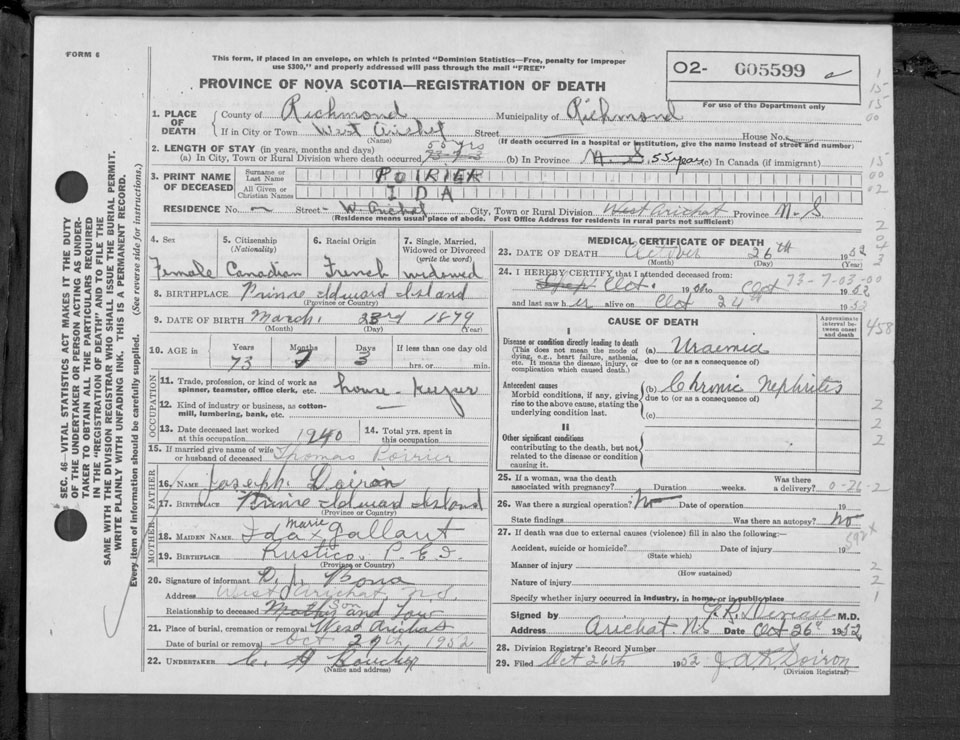 FORM 6
This form, if placed in an envelope, on which is printed "Dominion Statistics—Free, penalty for improper
use $300," and properly addressed will pass through the mail "FREE"
02- G05599
For use of the Department only
PROVINCE OF NOVA SCOTIA—REGISTRATION OF DEATH
1. PLACE OF DEATH
County of Richmond Municipality of Richmond
If in City or Town West Arichat Street House No.
(Name) (If death occurred in a hospital or institution, give the name instead of street and number)
2. LENGTH OF STAY (in years, months and days)
(a) In City, Town or Rural Division where death occurred 55 yrs (b) In Province N. S. 55 years (c) In Canada (if immigrant)
3. PRINT NAME OF DECEASED
Surname or Last Name POIRIER
All Given or Christian Names IDA
RESIDENCE No. Street W. Arichat City, Town or Rural Division West Arichat Province N. S
(Residence means usual place of abode. Post Office Address for residents in rural parts not sufficient)
4. Sex 5. Citizenship (Nationality) 6. Racial Origin 7. Single, Married, Widowed or Divorced (write the word)
Female Canadian French widowed
8. BIRTHPLACE Prince Edward Island
(Province or Country)
9. DATE OF BIRTH March. 23rd 1879
(Month) (Day) (Year)
10. AGE in Years Months Days If less than one day old
73 7 3 hrs. or min.
OCCUPATION
11. Trade, profession, or kind of work as
spinner, teamster, office clerk, etc. house-Keeper
12. Kind of industry or business, as cotton-
mill, lumbering, bank, etc.
13. Date deceased last worked
at this occupation 1940
14. Total yrs. spent in
this occupation
15. If married give name of wife
or husband of deceased Thomas Poirier
FATHER
16. NAME Joseph Doiron
17. BIRTHPLACE Prince Edward Island
(Province or Country)
MOTHER
18. MAIDEN NAME Ida x Marie Gallant
19. BIRTHPLACE Rustico, P.E.I.
(Province or Country)
20. Signature of informant
Address West Arichat, N.S.
Relationship to deceased Son and Law
21. Place of burial, cremation or removal West Arichat
Date of burial or removal Oct 29th 1952
22. UNDERTAKER
(Name and address)
MEDICAL CERTIFICATE OF DEATH
23. DATE OF DEATH October 26th 1952
(Month) (Day) (Year)
73-7-03-00
24. I HEREBY CERTIFY that I attended deceased from:
Oct. 19 to Oct 1952
and last saw her alive on Oct 24th 1952
CAUSE OF DEATH
Approximate interval between onset and death
458
I
Disease or condition directly leading to death
(This does not mean the mode of
dying, e.g., heart failure, asthenia,
etc. It means the disease, injury, or
complication which caused death.)
(a) Uraemia
due to (or as a consequence of)
Antecedent causes
Morbid conditions, if any, giving
rise to the above cause, stating the
underlying condition last.
(b) Chronic Nephritis
due to (or as a consequence of)
(c)
II
Other significant conditions
contributing to the death, but not
related to the disease or condition
causing it.
25. If a woman, was the death
associated with pregnancy? Duration weeks. Was there
a delivery? 0-26-2
26. Was there a surgical operation? No Date of operation 19
State findings Was there an autopsy? No
27. If death was due to external causes (violence) fill in also the following:—
Accident, suicide or homicide? Date of injury 19
(State which)
Manner of injury
(How sustained)
Nature of injury
Specify whether injury occurred in industry, in home, or in public place
Signed by M.D.
Address Arichat N.S Date Oct 26" 1952
28. Division Registrar's Record Number
29. Filed Oct 26th 1952 Doiron
(Division Registrar)
SEC. 46—VITAL STATISTICS ACT MAKES IT THE DUTY
OF THE UNDERTAKER OR PERSON ACTING AS UNDER-
TAKER TO OBTAIN ALL THE PARTICULARS REQUIRED
IN THE "REGISTRATION OF DEATH" AND TO FILE THE
SAME WITH THE DIVISION REGISTRAR WHO SHALL ISSUE THE BURIAL PERMIT.
WRITE PLAINLY WITH UNFADING INK. THIS IS A PERMANENT RECORD.
Every item of information should be carefully supplied. (See reverse side for instructions.)